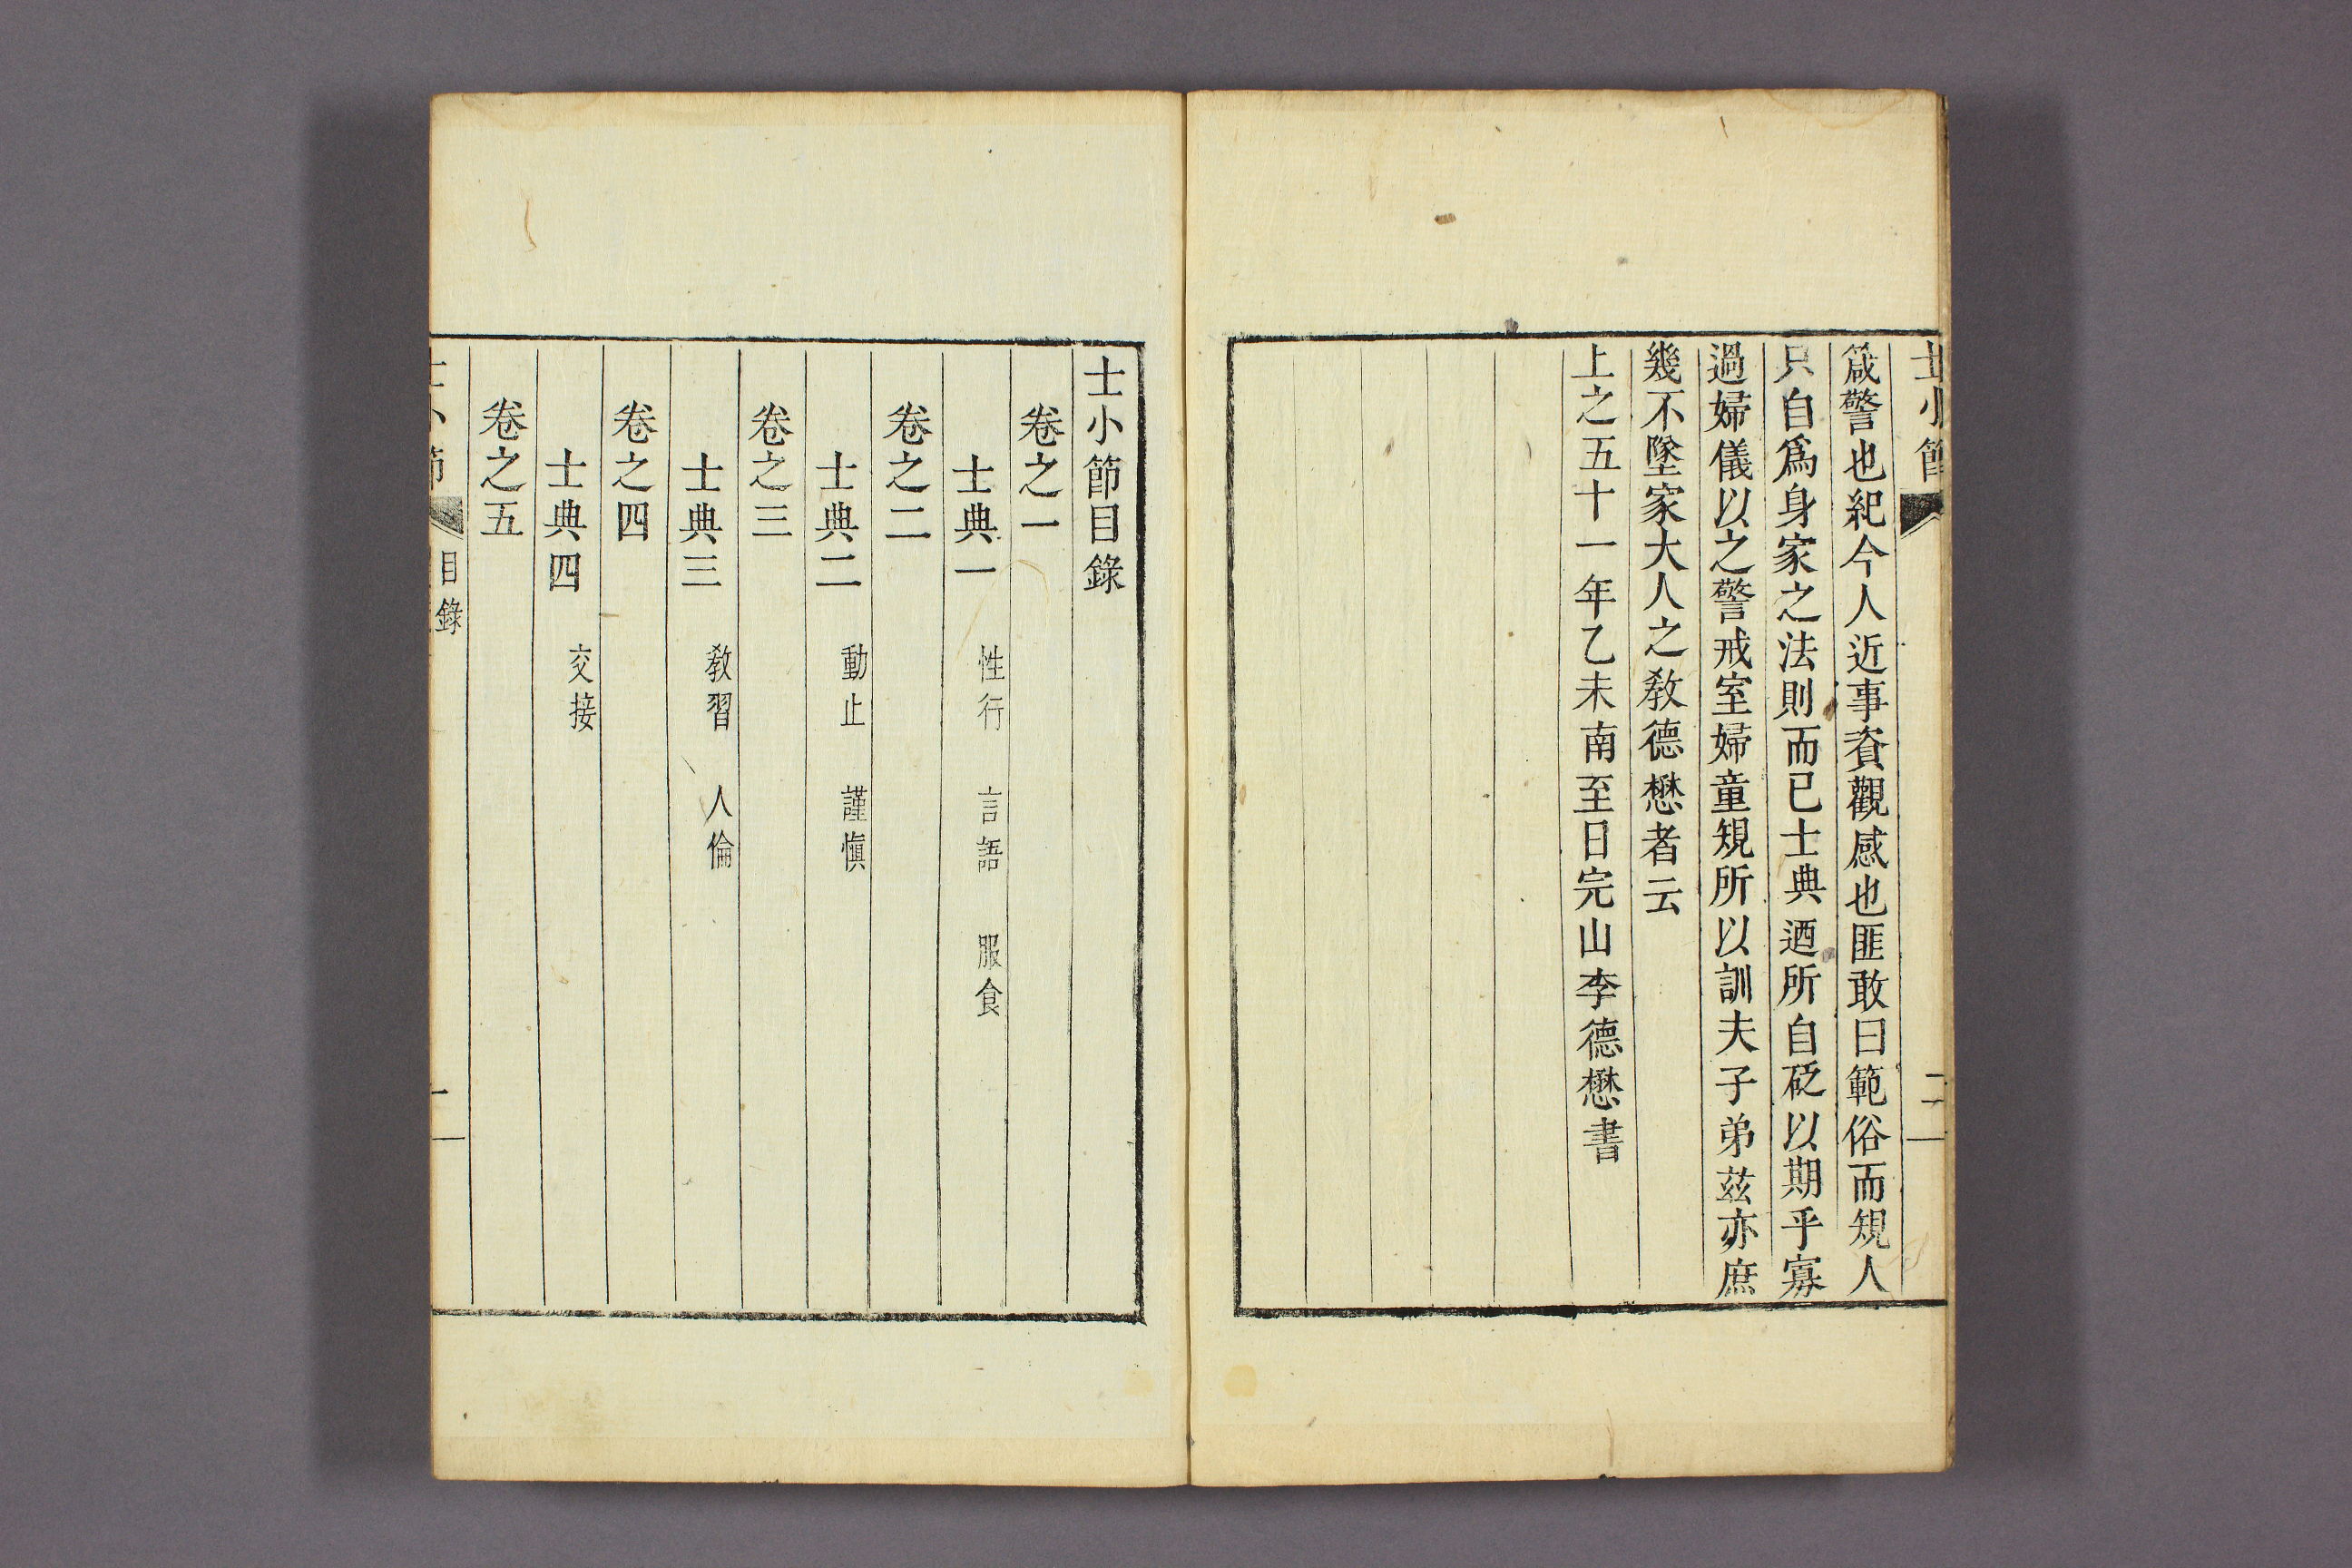 士小節
二
箴警也紀今人近事資觀感也匪敢曰範俗而規人
只自爲身家之法則而已士典迺所自砭以期乎寡
過婦儀以之警戒室婦童規所以訓夫子弟玆亦庶
幾不墜家大人之敎德懋者云
上之五十一年乙未南至日完山李德懋書
士小節目錄
卷之一
士典一 性行 言語 服食
卷之二
士典二 動止 謹愼
卷之三
士典三 敎習 人倫
卷之四
士典四 交接
卷之五
士小節
目錄
一